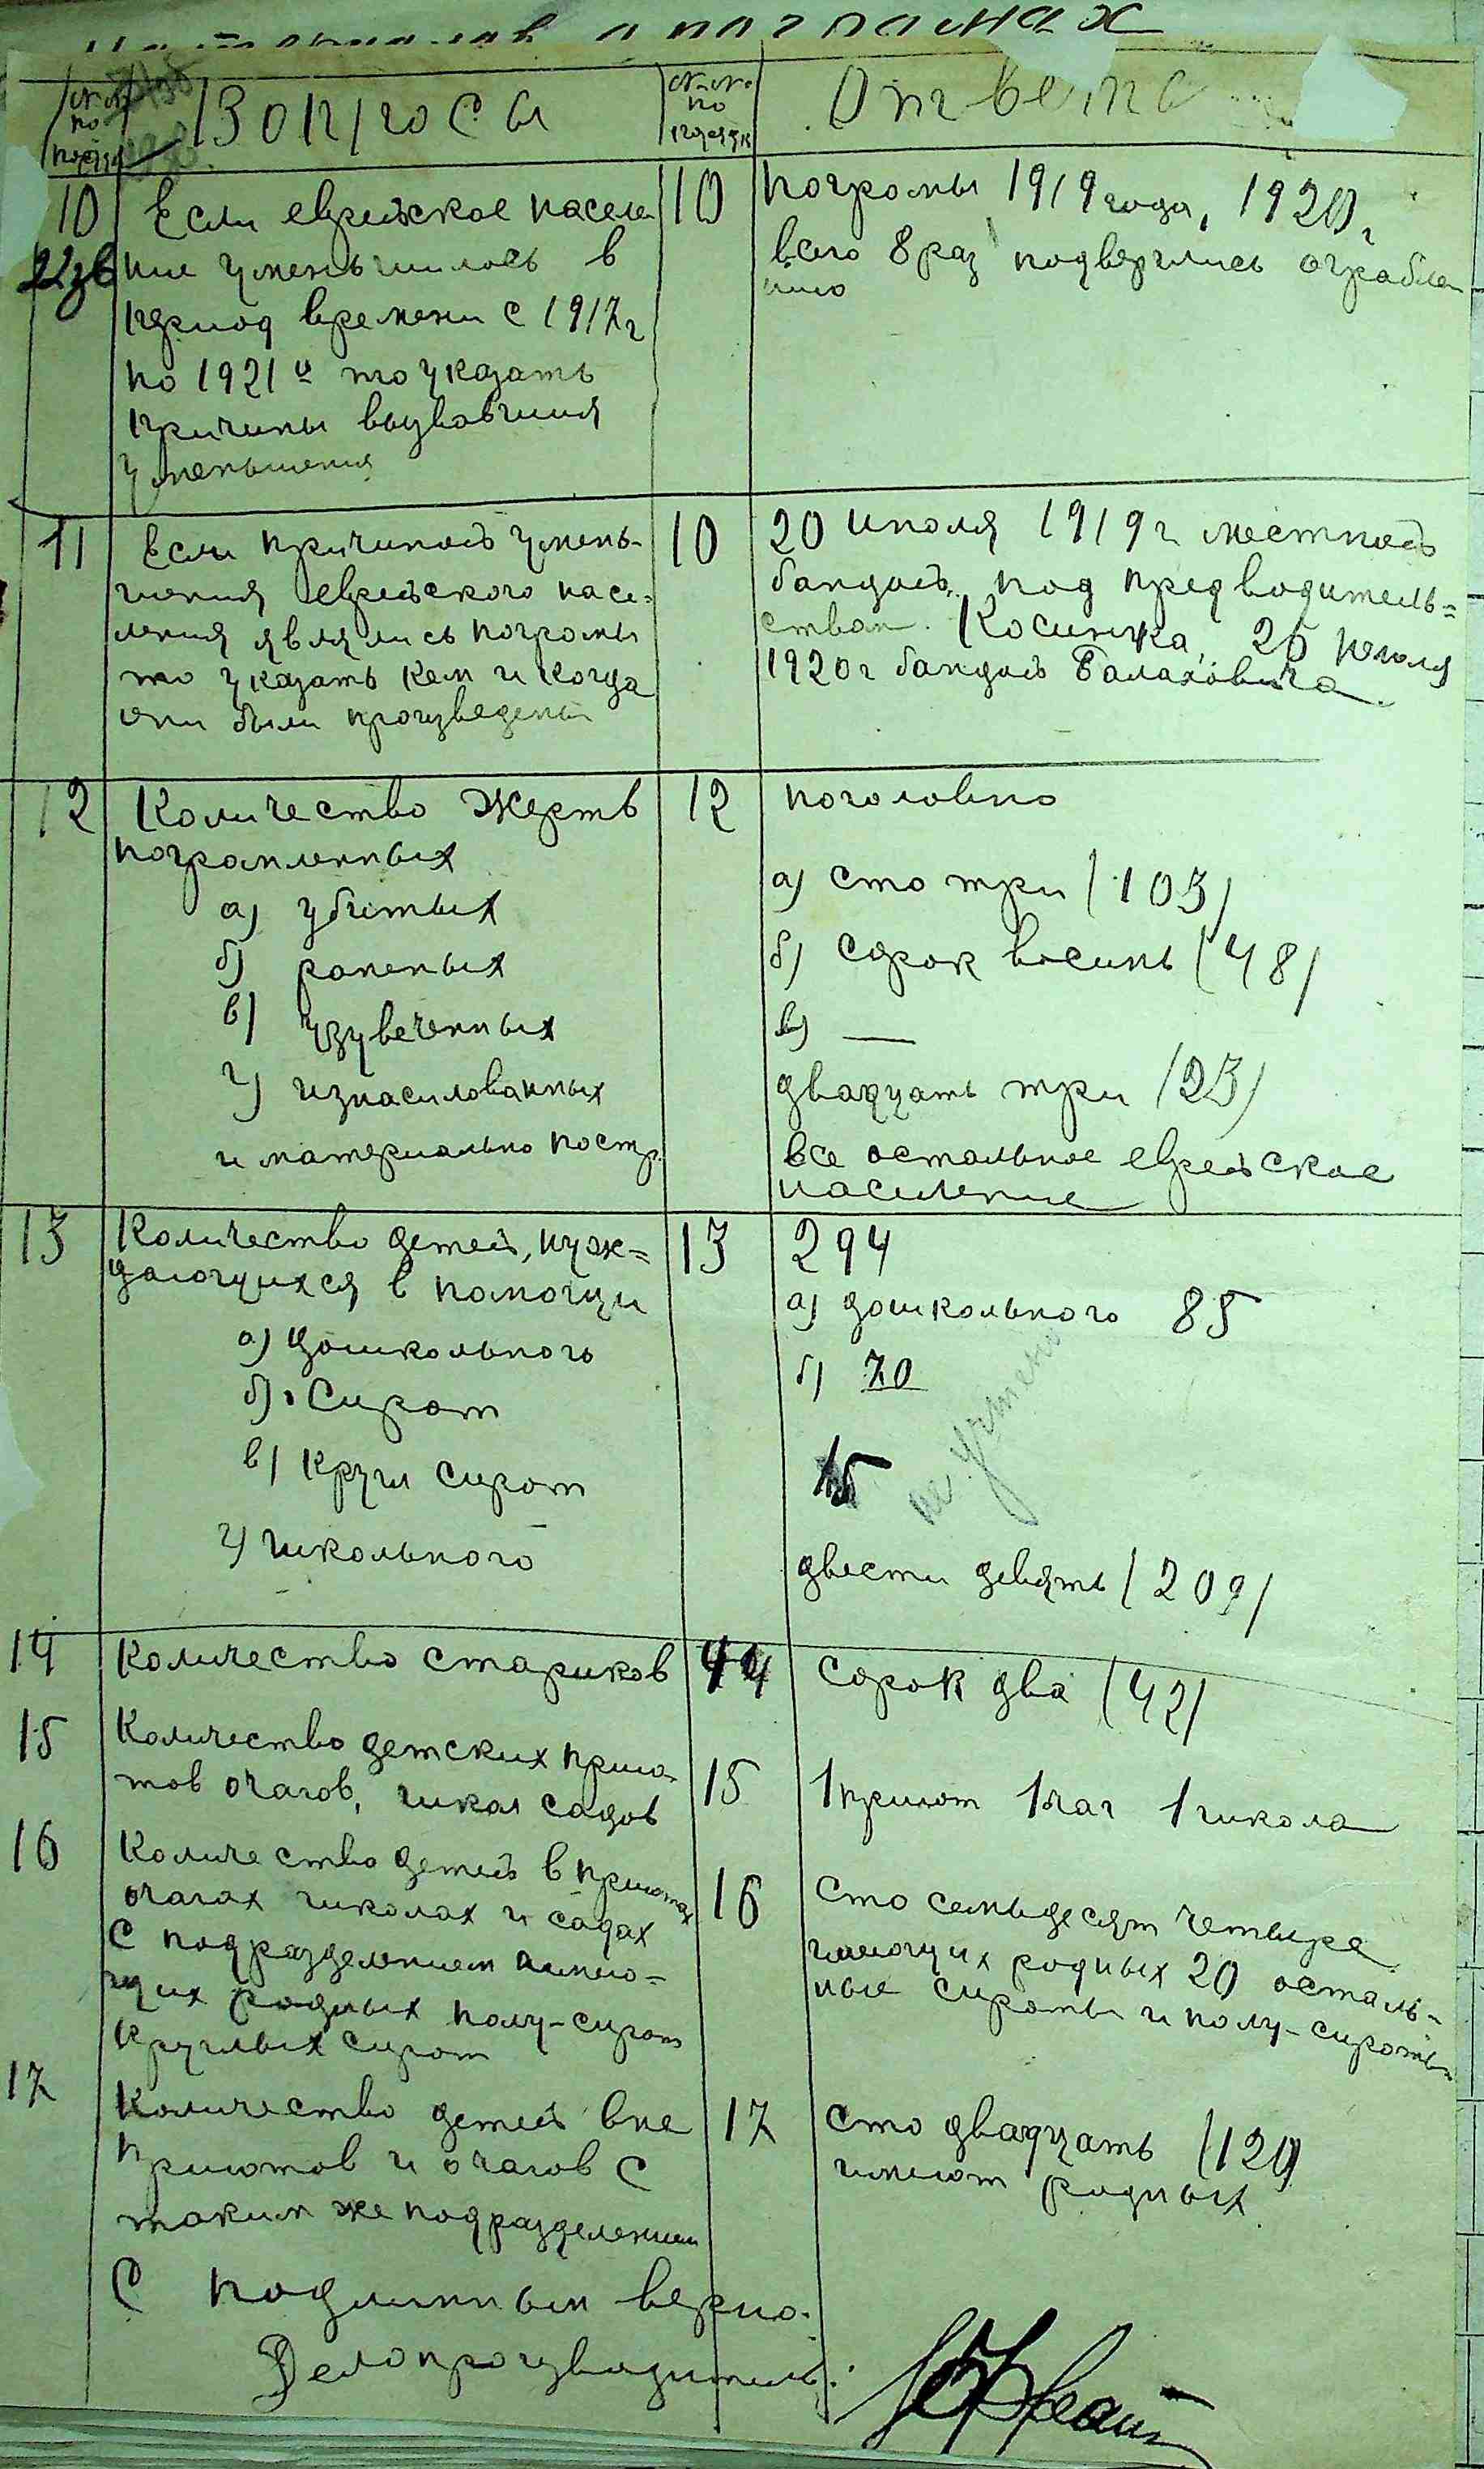 о погромах
№№ по порядк
Вопросы
№№ по порядк
Ответы
10
Если еврейское населе
ние уменьшилось в
период времени с 1917 г
по 1921 й то указать
причины вызвавшия
уменьшения
10
погромы 1919 года, 1920 г
всего 8 раз подверглись ограбле
нию
11
Если причиной умень-
шения еврейского насе-
ления являлись погромы
то указать кем и когда
они были произведены
10
20 июля 1919 г местной
бандой под предводитель=
ством Косинжа, 26 июля
1920 г бандой Балаховича
12
Количество жертв
погромленных
а) убитых
б) раненых
в) узувеченных
г) изнасилованных
и материально постр.
12
поголовно
а) сто три (103)
б) сорок восимь (48)
в) —
двадцать три (23)
все остальное еврейское
насиление
13
Количество детей, нуж=
дающихся в помощи
а) дошкольного
б) Сирот
в) кругл сирот
г) школьного
13
294
а) дошкольного 85
б) 70
15
не учтено
двести девять (209)
14
Количество стариков
14
сорок два (42)
15
Количество детских прию
тов очагов, школ садов
15
1 приют 1 чаг 1 школа
16
Количество детей в приютах
очагах школах и садах
с подразделением имею=
щих родных полу-сирот
круглых сирот
16
Сто семьдесят четыре
имеющих родных 20 осталь-
ные сироты и полу-сироты
17
Количество детей вне
приютов и очагов с
таким же подразделением
17
сто двадцать (120)
имеют родных
С подлинным верно.
Делопроизводитель: